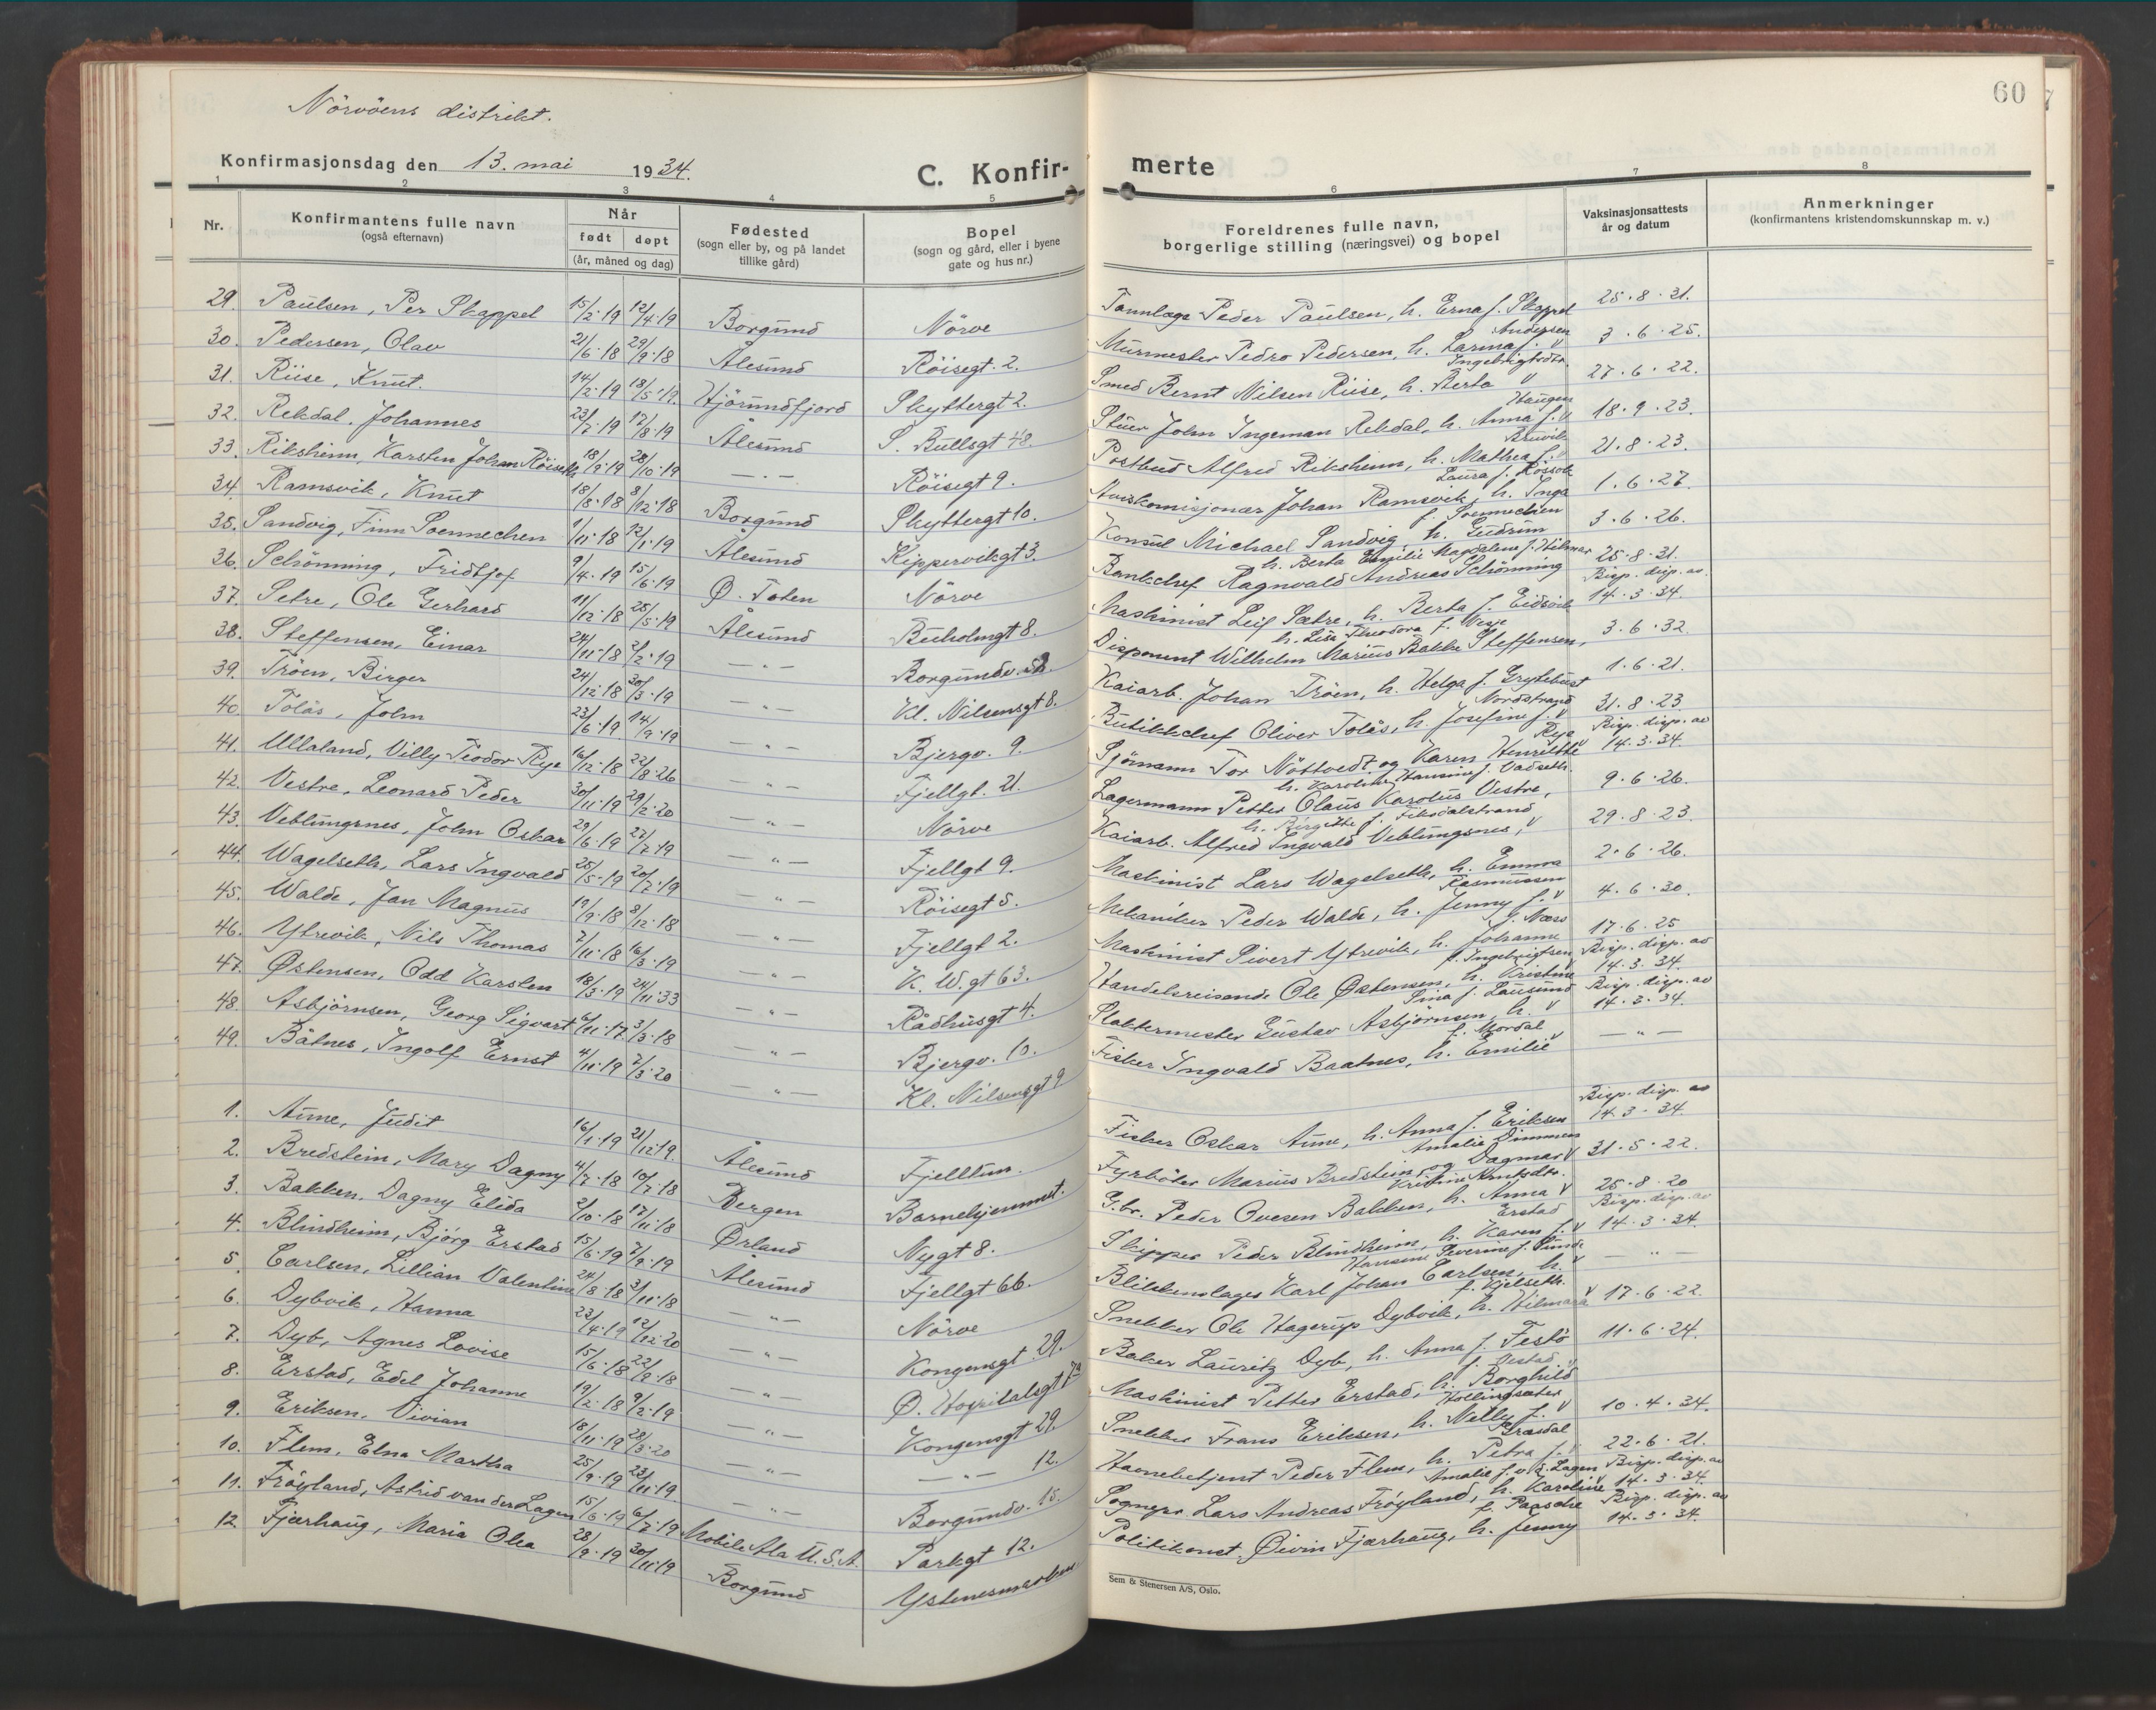 Nörvöens distrikt.
60
Konfirmasjonsdag den 13. mai 1934.
C. Konfirmerte
1 2 3 4 5 6 7 8
Nr.
Konfirmantens fulle navn
(også efternavn)
Når
født døpt
(år, måned og dag)
Fødested
(sogn eller by, og på landet
tillike gård)
Bopel
(sogn og gård, eller i byene
gate og hus nr.)
Foreldrenes fulle navn,
borgerlige stilling (næringsvei) og bopel
Vaksinasjonsattests
år og datum
Anmerkninger
(konfirmantens kristendomskunnskap m. v.)
29. Paulsen, Per Skappel 15/2-19 12/4-19 Borgund Nörve Tannlæge Peder Paulsen, h. Erna f. Skappel 25.8.31.
30. Pedersen, Olav 21/6-18 29/9-18 Ålesund Röisegt. 2. Murmester Pedro Pedersen, h. Larina f. Andersen 3.6.25.
31. Riise, Knut. 14/2-19 18/5-19. Hjörundfjord Skyttergt 2. Smed Bernt Nilsen Riise, h. Berta Ingebrigtsdtr. 27.6.22.
32. Rekdal, Johannes 23/7-19 17/8-19 Ålesund S. Bullsgt 48. Stuer John Ingeman Rekdal, h. Anna f. Haugen 18.9.23.
33. Riksheim, Karsten Johan Röiseth 18/9-19 28/10-19 — " — Röisegt 9. Postbud Alfred Riksheim, h. Mathea f. Brevik 21.8.23.
34. Ramsvik, Knut 18/8-18 8/12-18 Borgund Skyttergt 10. Aviskomisjonær Johan Ramsvik, h. Inga Laura f. Rossvik 1.6.27.
35. Sandvig, Finn Soennechen 1/11-18 12/1-19 Ålesund Kippervikgt 3. Konsul Michael Sandvig, h. Gudrun f. Soennechen 3.6.26.
36. Schönning, Fridtjof 9/4-19 15/6-19 Ø. Toten Nörve Bankchef Ragnvald Andreas Schönning h. Berta Emilie Magdalene f. Hilmar 25.8.31.
37. Setre, Ole Gerhard 11/12-18 25/5-19 Ålesund Buholmgt 8. Maskinist Leif Sætre, h. Berta f. Eidsvik Bisp. disp. av 14.3.34.
38. Steffensen, Einar 24/11-18 2/2-19 — " — Borgundv. Disponent Wilhelm Marius Bakke Steffensen, h. Lise Theodora f. Weje 3.6.32.
39. Tröen, Birger 24/12-18 30/3-19 — " — Kl. Nilsensgt 8. Kaiarb. Johan Tröen, h. Helga f. Grytebust 1.6.21.
40. Tolås, John 23/6-19. 14/9-19 — " — Bjergv. 9. Butikkchef Oliver Tolås, h. Josefine f. Nordstrand 31.8.23
41. Ullaland, Villy Teodor Rye 16/12-18 22/8-26 — " — Fjellgt. 21. Sjömann Tor Nöttvedt og Karen Henriette Rye Bisp. disp. av 14.3.34.
42. Vestre, Leonard Peder 30/11-19 29/2-20 — " — Nörve Lagermann Petter Olaus Karolus Vestre, h. Karoline Hansine f. Vadseth. 9.6.26.
43. Veblungsnes, John Oskar 29/6-19 27/7-19 — " — Fjellgt 9. Kaiarb. Alfred Ingvald Veblungsnes, h. Birgitte f. Fiksdalstrand 29.8.23.
44. Wagelseth, Lars Ingvald 25/5-19 20/7-19 — " — Röisegt 5. Maskinist Lars Wagelseth, h. Emma 2.6.26.
45. Walde, Jan Magnus 19/9-18 8/12-18 — " — Fjellgt 2. Mekaniker Peder Walde, h. Jenny f. Rasmussen 4.6.30.
46. Ytrevik, Nils Thomas 7/11-18 16/3-19 — " — K. W. gt 63. Maskinist Sivert Ytrevik, h. Johanne f. Næss 17.6.25
47. Østensen, Odd Karsten 18/3-19 24/11-33 — " — Rådhusgt 4. Handelsreisende Ole Østensen, h. Kristine f. Ingebrigtsen Bisp. disp. av 14.3.34.
48. Asbjörnsen, Georg Sigvart 6/11-17 3/3-18 — " — Bjergv. 10. Slaktermester Gustav Asbjörnsen, h. Sina f. Lausund Bisp. disp. av 14.3.34.
49. Båtnes, Ingolf Ernst 4/11-19 7/3-20 — " — Kl. Nilsensgt 9 Fisker Ingvald Baatnes, h. Emilie f. Mordal — " —
1. Aune, Judit 16/1-19 21/12-19. Ålesund Fjelltun. Fisker Oskar Aune, h. Anna f. Eriksen Bisp. disp. av 14.3.34.
2. Bredstein, Mary Dagny 4/7-18 10/7-18 Bergen Barnehjemmet. Fyrböter Marius Bredstein og Dagmar Amalie Dimmen 31.5.22.
3. Bakken, Dagny Elida 2/10-18 17/11-18 Ørland Nygt 8. G.br. Peder Ovesen Bakken, h. Anna Kristine Arntsdtr. 25.8.20
4. Blindheim, Bjørg Erstad 15/6-19 7/9-19 Ålesund Fjellgt 66. Skipper Peder Blindheim, h. Karen f. Erstad Bisp. disp. av 14.3.34.
5 Carlsen, Lillian Valentine 24/8-18 3/11-18 — " — Nörve Blikkenslager Karl Johan Carlsen, h. Hansine Severine f. Sunde — " —
6. Dybvik, Hanna 23/4-19 12/12-20 — " — Kongensgt 29. Snekker Ole Hagerup Dybvik, h. Hilmara f. Kjelseth. 17.6.22.
7. Dyb, Agnes Lovise 15/6-18 22/9-18 — " — Ø. Hospitalsgt Baker Lauritz Dyb, h. Anna f. Festö 11.6.24.
8. Erstad, Edel Johanne 19/2-18 9/2-19 — " — Kongensgt 29. Maskinist Petter Erstad, h. Borghild f. Vestad
9. Eriksen, Vivian 18/11-19 28/3-20 — " — — " — 12. Snekker Frans Eriksen, h. Nelly f. Hollingsæter 10.4.34.
10. Flem, Elna Martha 25/9-19 23/11-19. — " — Borgundv. 15. Havnebetjent Peder Flem, h. Petra f. Græsdal 22.6.21.
11. Fröyland, Astrid van der Lagen 15/6-19 6/7-19 Mobile Ala U.S.A. Parkgt 12. Sognepr. Lars Andreas Fröyland, h. Karoline Amalie f. v. d. Lagen Bisp. disp. av 14.3.34.
12 Fjærhaug, Maria Olea 28/9-19 30/11-19 Borgund Ystenesmarken Politikonst. Øivin Fjærhaug, h. Jenny f. Paasche Bisp. disp. av 14.3.34.
Sem & Stenersen A/S, Oslo.